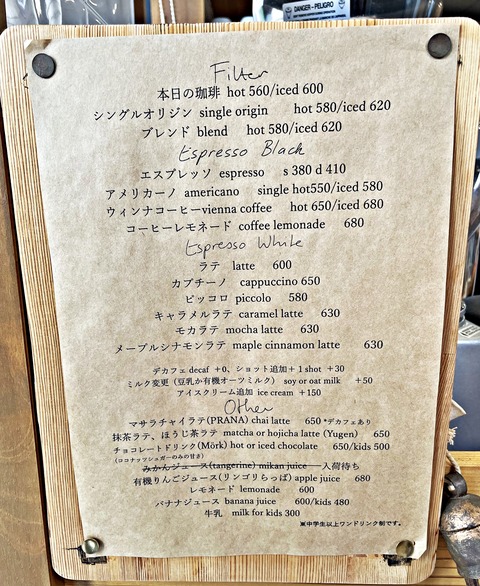 DANGER – PELIGRO
Filter
本日の珈琲 hot 560/iced 600
シングルオリジン single origin hot 580/iced 620
ブレンド blend hot 580/iced 620
Espresso Black
エスプレッソ espresso s 380 d 410
アメリカーノ americano single hot550/iced 580
ウィンナコーヒーvienna coffee hot 650/iced 680
コーヒーレモネード coffee lemonade 680
Espresso White
ラテ latte 600
カプチーノ cappuccino 650
ピッコロ piccolo 580
キャラメルラテ caramel latte 630
モカラテ mocha latte 630
メープルシナモンラテ maple cinnamon latte 630
デカフェ decaf +0、ショット追加+ 1 shot +30
ミルク変更（豆乳か有機オーツミルク） soy or oat milk +50
アイスクリーム追加 ice cream +150
Other
マサラチャイラテ(PRANA) chai latte 650 *デカフェあり
抹茶ラテ、ほうじ茶ラテ matcha or hojicha latte (Yugen) 650
チョコレートドリンク(Mörk) hot or iced chocolate 650/kids 500
(ココナッツシュガーのみの甘さ)
みかんジュース(tangerine) mikan juice 入荷待ち
有機りんごジュース(リンゴリらっぱ) apple juice 680
レモネード lemonade 600
バナナジュース banana juice 600/kids 480
牛乳 milk for kids 300
※中学生以上ワンドリンク制です。